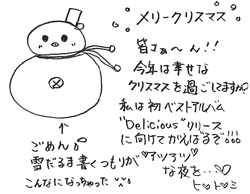 メリークリスマス
皆さぁ〜ん!!
今年は幸せな
クリスマスを過ごしてますか?
私は初ベストアルバム
"Delicious"リリース
に向けてがんばるぞ!!!
ごめん
雪だるま書くつもりが
こんなになっちゃった
アツアツ
な夜を…